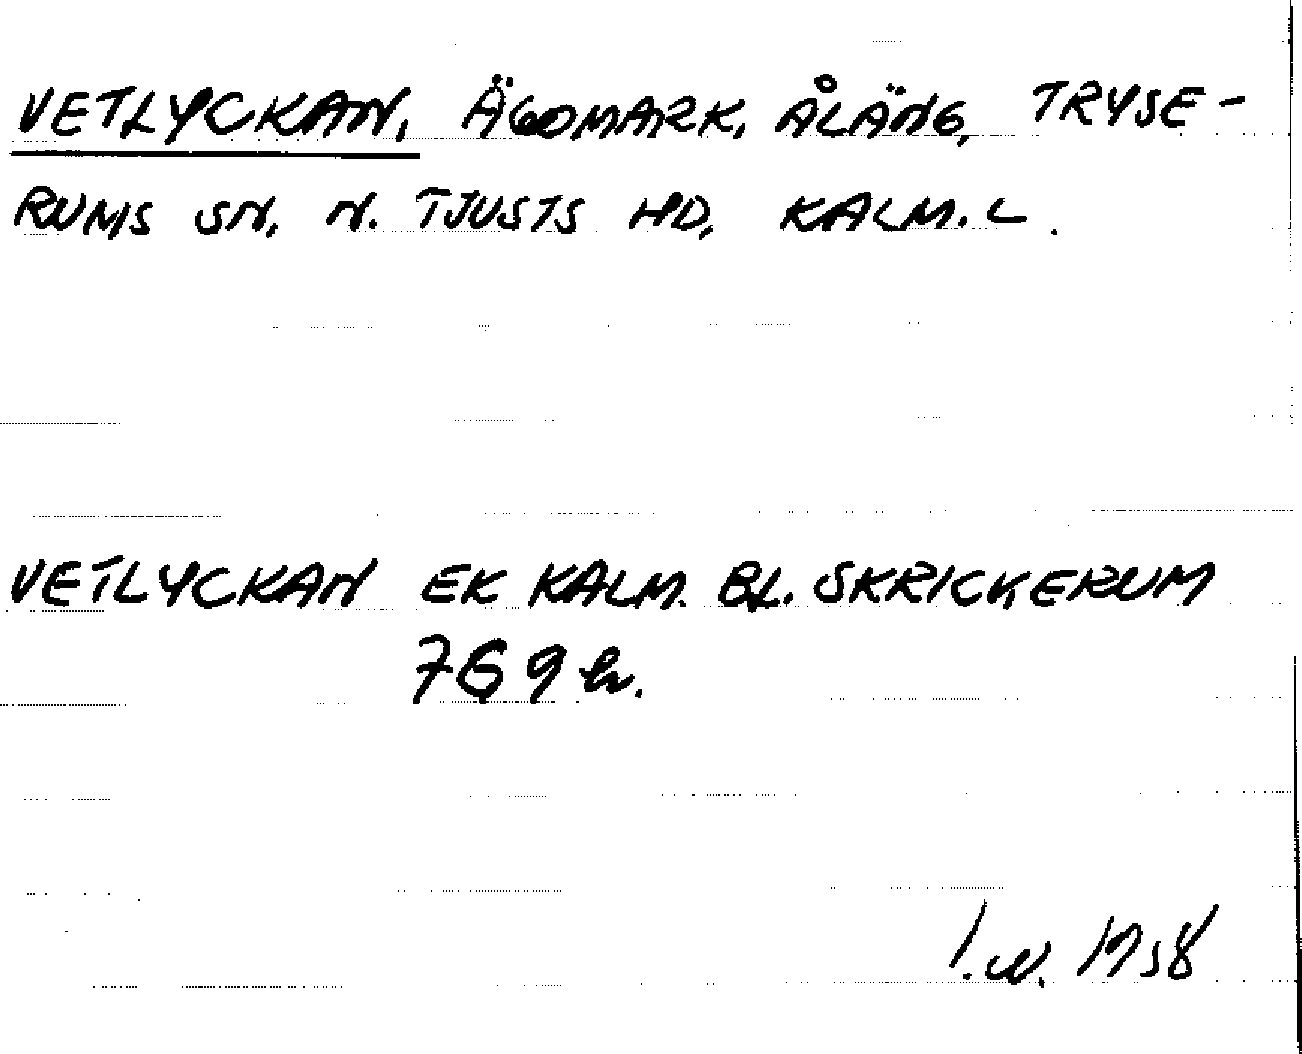 VETLYCKAN, ÄGOMARK, ÅLÄNG, TRYSE-
RUMS SN, N. TJUSTS HD, KALM. L.
VETLYCKAN EK KALM. BL. SKRICKERUM
769 h.
I.W. 1958